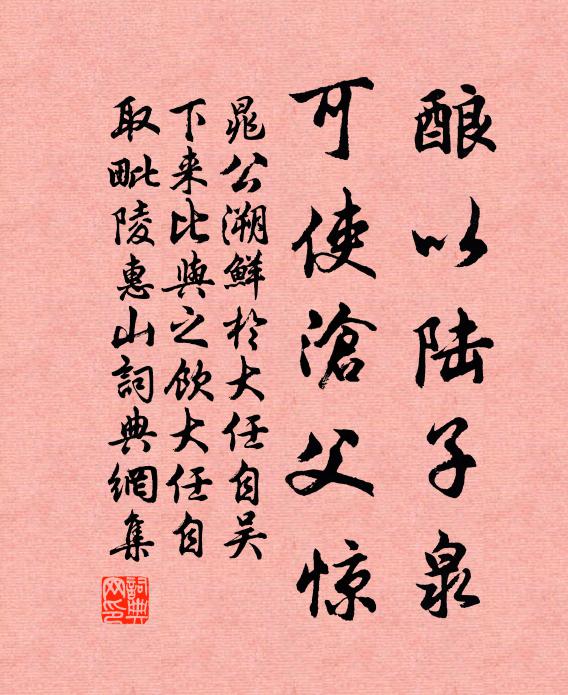 酿以陆子泉
可使滄父惊
晁公溯鮮於大任自吴
下来比與之飲大任自
取毗陵惠山詞典網集
詞典网印